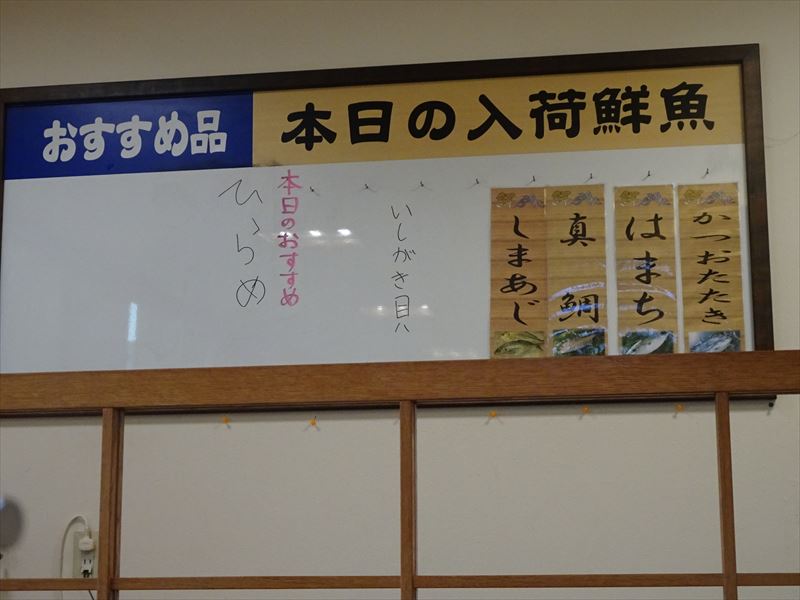 おすすめ品
本日の入荷鮮魚
かつおたたき
はまち
真鯛
しまあじ
いしがき貝
本日のおすすめ
ひらめ